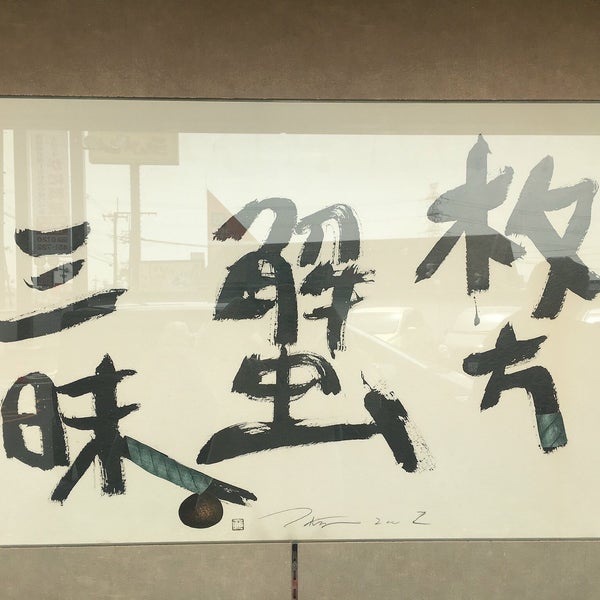 枚方
蟹
三昧